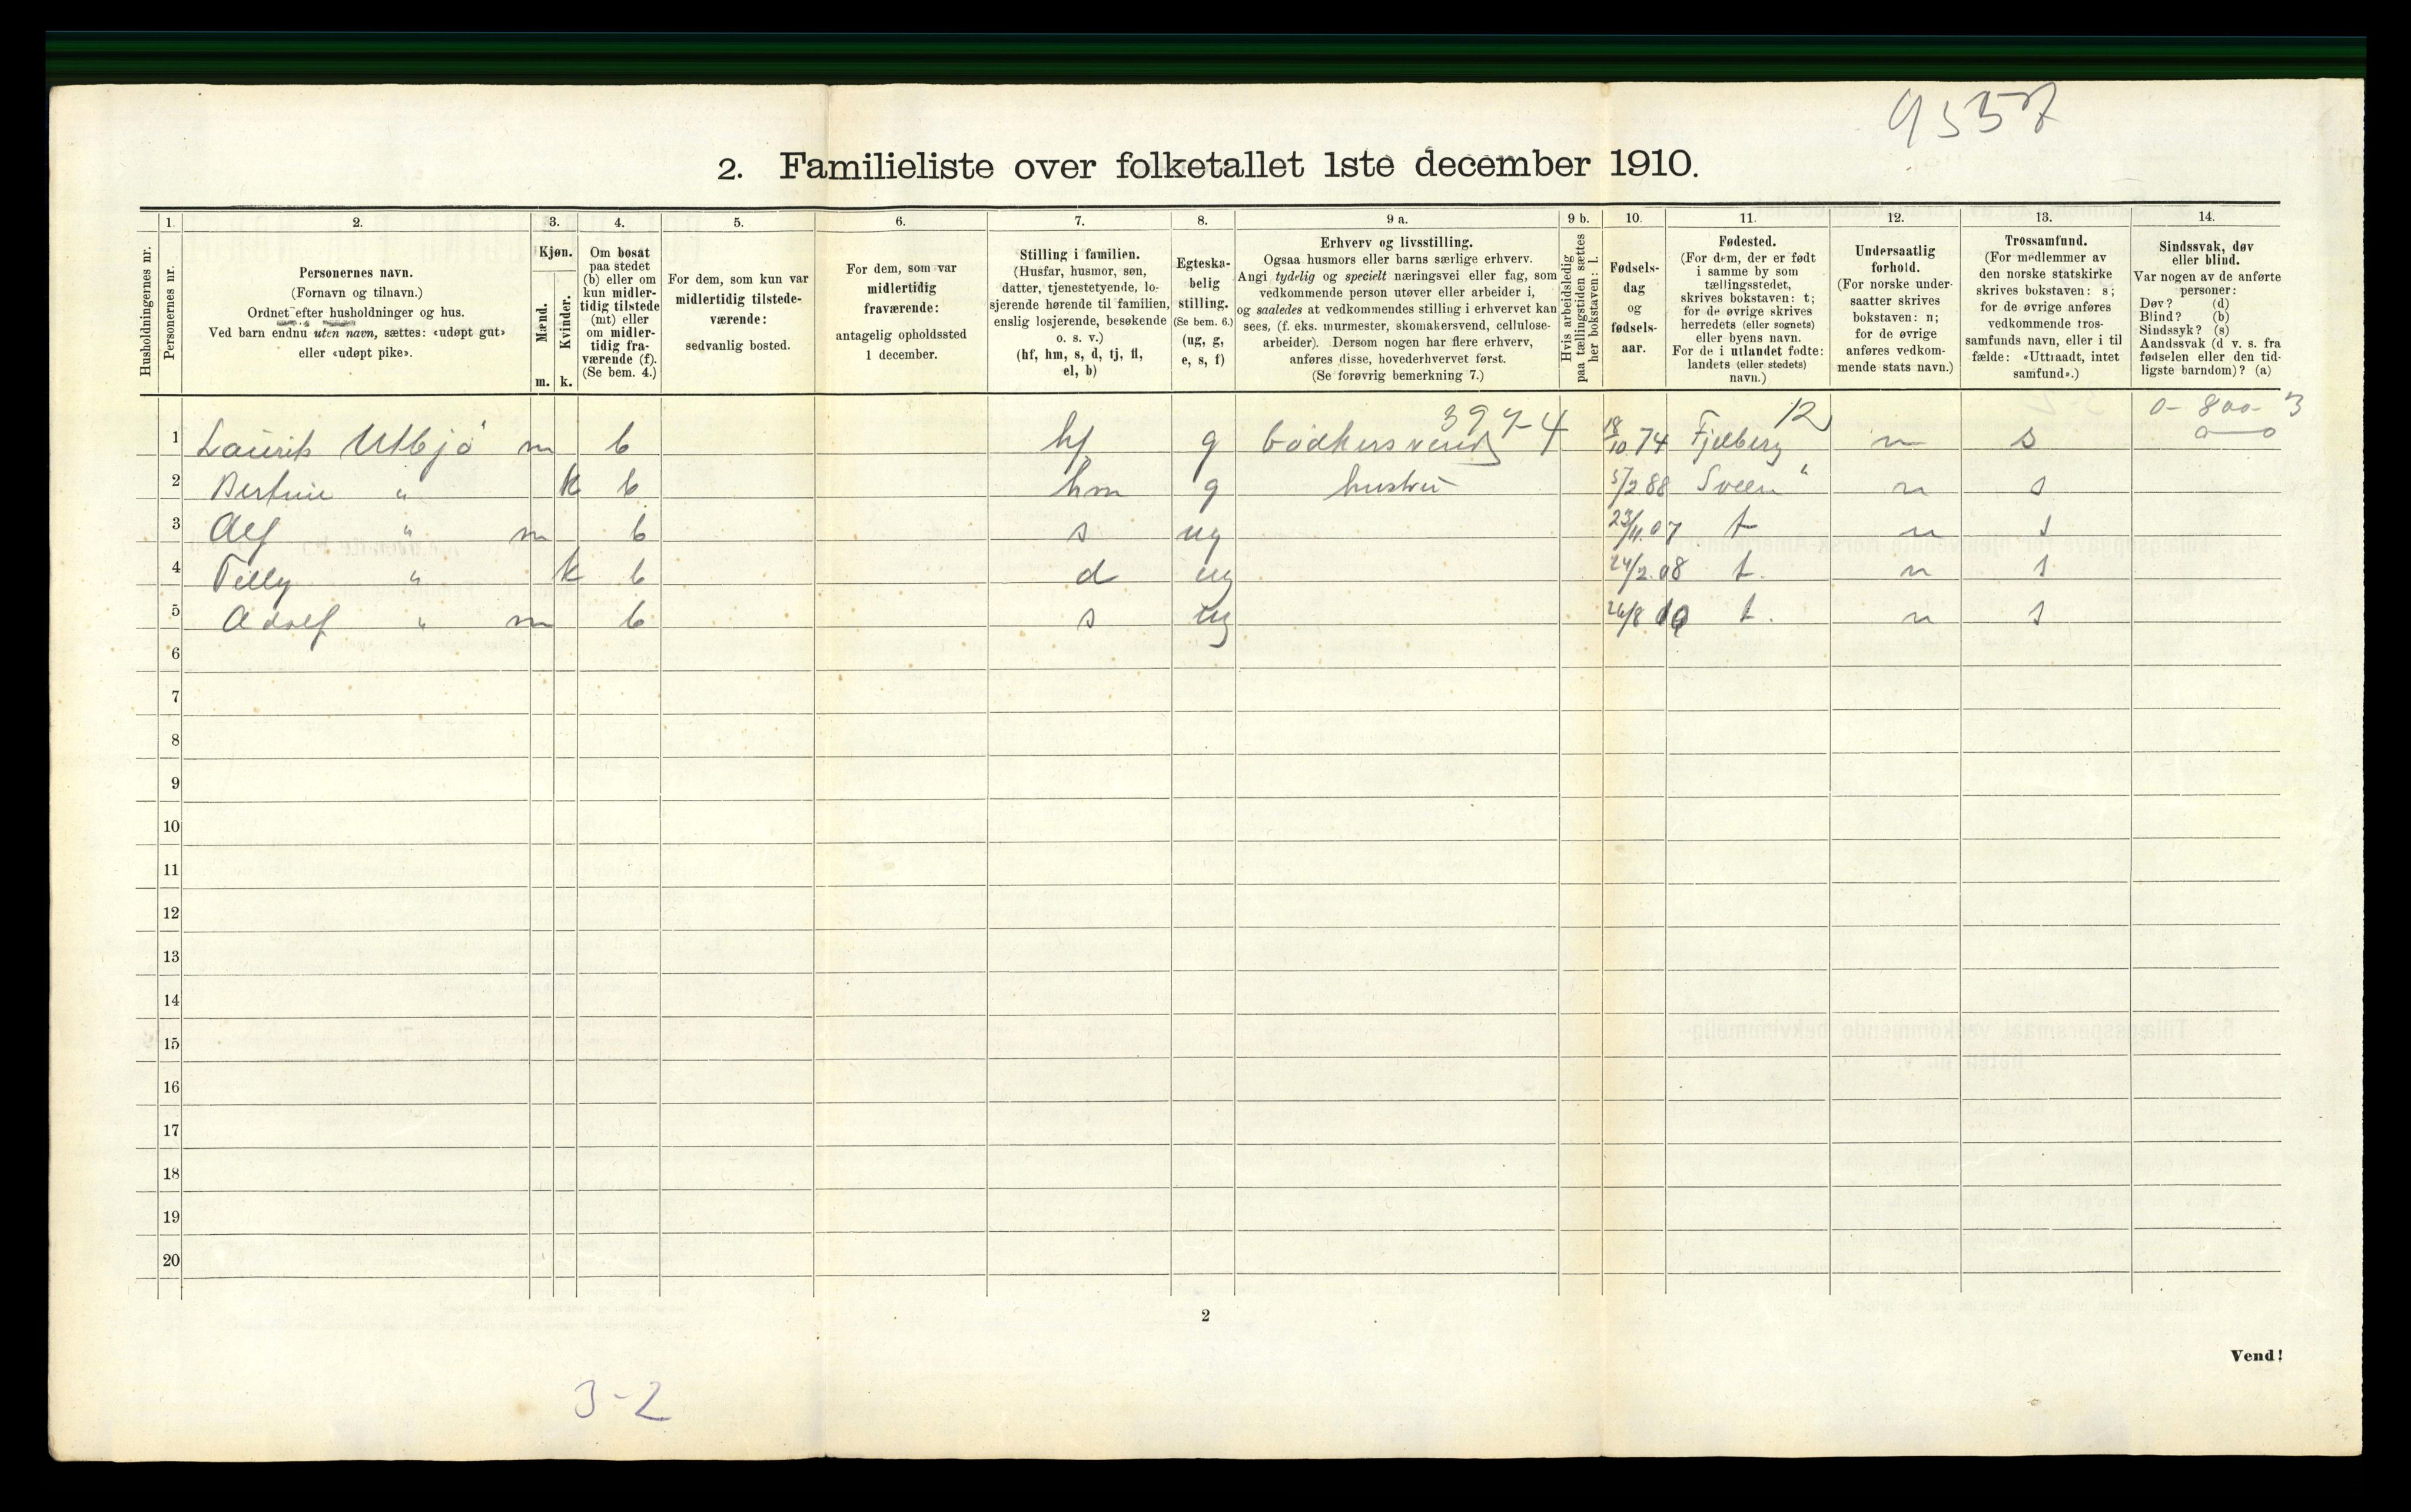 9557
2. Familieliste over folketallet 1ste december 1910.
Husholdningernes nr.
1. Personernes nr.
2. Personernes navn. (Fornavn og tilnavn.) Ordnet efter husholdninger og hus. Ved barn endnu uten navn, sættes: «udøpt gut» eller «udøpt pike».
3. Kjøn. Mænd. m. Kvinder. k.
4. Om bosat paa stedet (b) eller om kun midlertidig tilstede (mt) eller om midlertidig fraværende (f). (Se bem. 4.)
5. For dem, som kun var midlertidig tilstedeværende: sedvanlig bosted.
6. For dem, som var midlertidig fraværende: antagelig opholdssted 1 december.
7. Stilling i familien. (Husfar, husmor, søn, datter, tjenestetyende, losjerende hørende til familien, enslig losjerende, besøkende o. s. v.) (hf, hm, s, d, tj, fl, el, b)
8. Egteskabelig stilling. (Se bem. 6.) (ug, g, e, s, f)
9 a. Erhverv og livsstilling. Ogsaa husmors eller barns særlige erhverv. Angi tydelig og specielt næringsvei eller fag, som vedkommende person utøver eller arbeider i, og saaledes at vedkommendes stilling i erhvervet kan sees, (f. eks. murmester, skomakersvend, cellulosearbeider). Dersom nogen har flere erhverv, anføres disse, hovederhvervet først. (Se forøvrig bemerkning 7.)
9 b. Hvis arbeidsledig paa tællingstiden sættes her bokstaven: l.
10. Fødselsdag og fødselsaar.
11. Fødested. (For dem, der er født i samme by som tællingsstedet, skrives bokstaven: t; for de øvrige skrives herredets (eller sognets) eller byens navn. For de i utlandet fødte: landets (eller stedets) navn.)
12. Undersaatlig forhold. (For norske undersaatter skrives bokstaven: n; for de øvrige anføres vedkommende stats navn.)
13. Trossamfund. (For medlemmer av den norske statskirke skrives bokstaven: s; for de øvrige anføres vedkommende trossamfunds navn, eller i tilfælde: «Uttraadt, intet samfund».)
14. Sindssvak, døv eller blind. Var nogen av de anførte personer: Døv? (d) Blind? (b) Sindssyk? (s) Aandssvak (d. v. s. fra fødselen eller den tidligste barndom)? (a)
397-4 12 0-800-3
1 Laurits Utbjö m b hf g bödkersvend 18/10 74 Fjelberg n s 0-0
2 Bertine " k b hm g hustru 5/2 88 Sveen " n s
3 Alf " m b s ug 23/11.07 t n s
4 Tilly " k b d ug 24/2.08 t. n s
5 Adolf " m b s ug 26/8 t. n s
6
7
8
9
10
11
12
13
14
15
16
17
18
19
20
2
Vend!
3-2